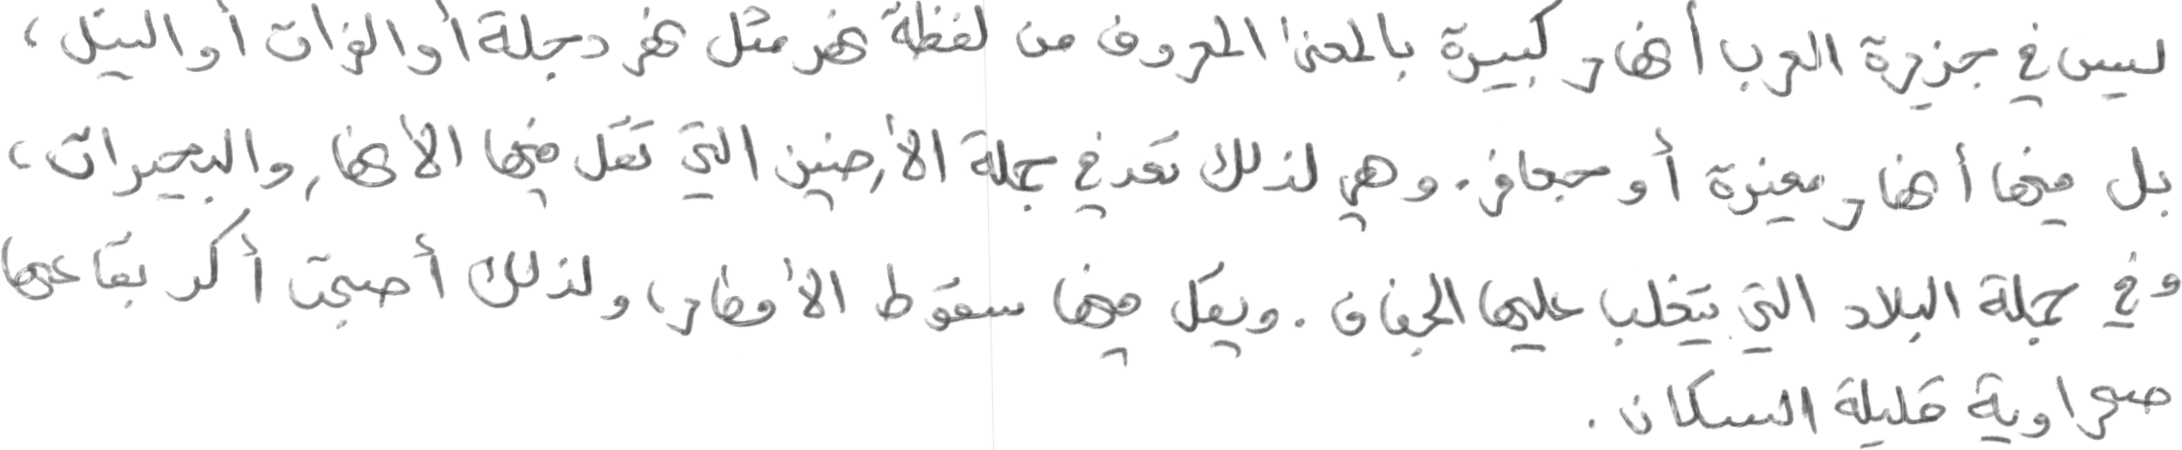 ليس في جزيرة العرب أنهار كبيرة بالمعنى المعروف من لفظة نهر مثل نهر دجلة أو الفرات أو النيل،
بل فيها أنهار صغيرة أو جعافر. وهي لذلك تعد في جملة الأرضين التي تقل فيها الأنهار والبحيرات،
وفي جملة البلاد التي يتغلب عليها الجفاف. ويقل فيها سقوط الأمطار، ولذلك أصبحت أكثر بقاعها
صحراوية قليلة السكان.